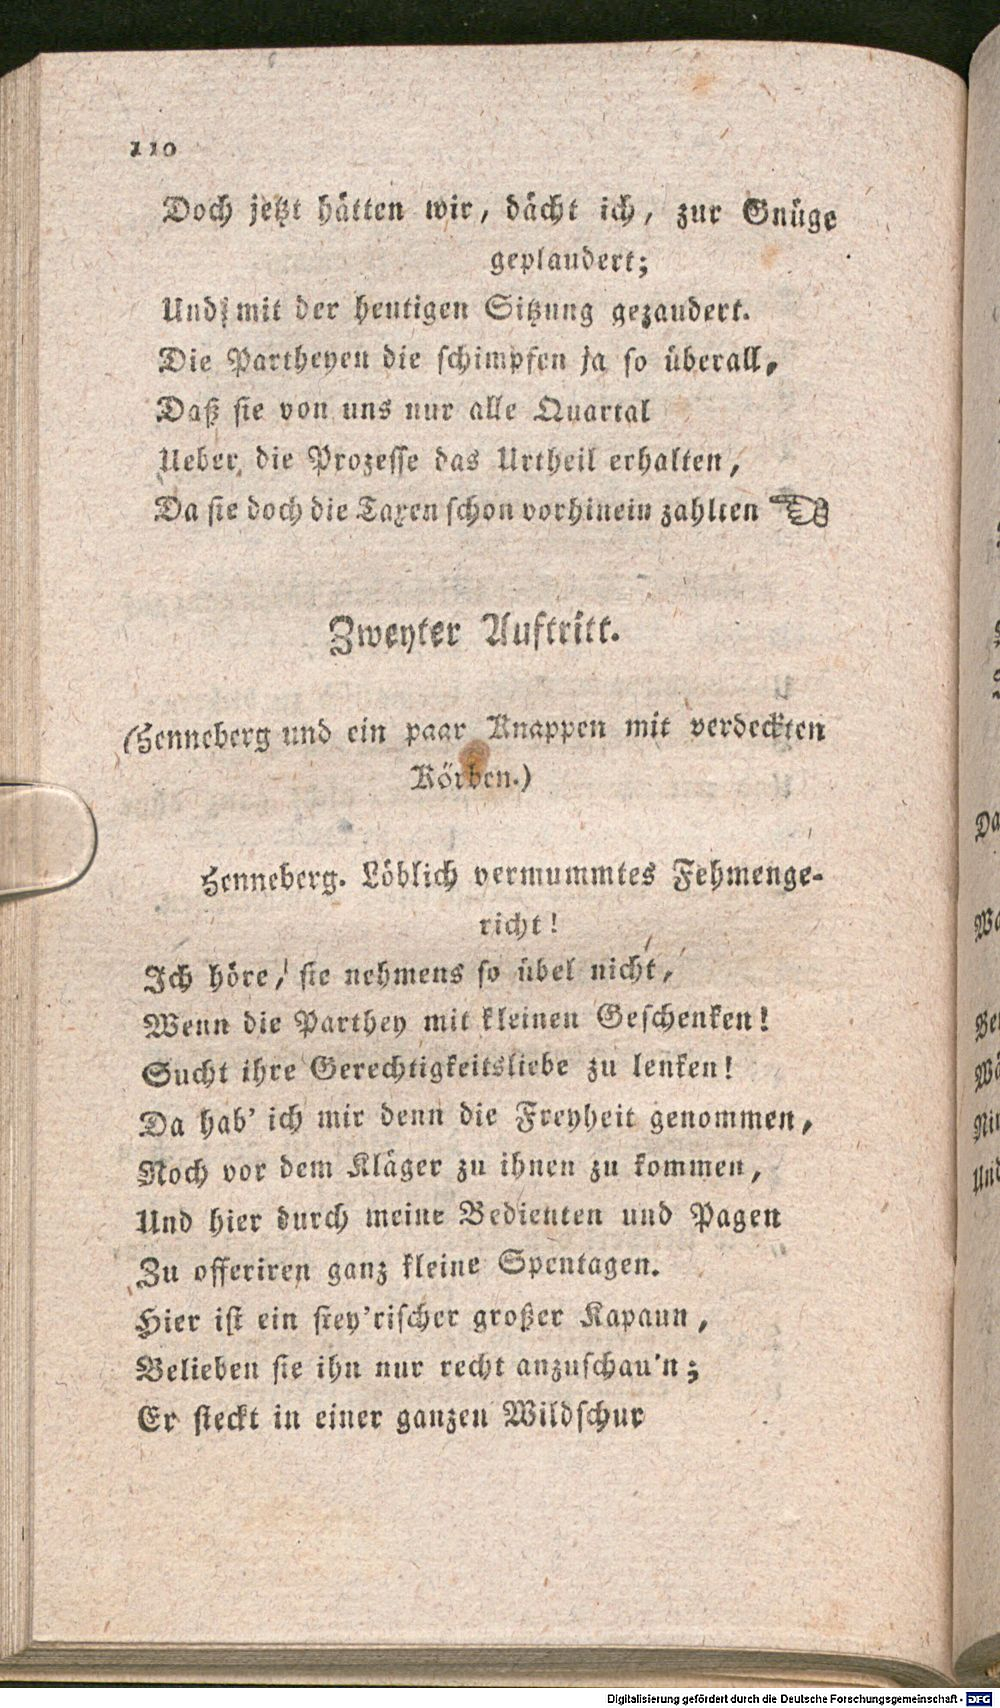 110
Doch jetzt hätten wir, dächt ich, zur Gnüge
geplaudert;
Und mit der heutigen Sitzung gezaudert.
Die Partheyen die schimpfen ja so überall,
Daß sie von uns nur alle Quartal
Ueber die Prozesse das Urtheil erhalten,
Da sie doch die Taxen schon vorhinein zahlten ☜
Zweyter Auftritt.
(Henneberg und ein paar Knappen mit verdeckten
Körben.)
Henneberg. Löblich vermummtes Fehmenge-
richt!
Ich höre, sie nehmens so übel nicht,
Wenn die Parthey mit kleinen Geschenken!
Sucht ihre Gerechtigkeitsliebe zu lenken!
Da hab' ich mir denn die Freyheit genommen,
Noch vor dem Kläger zu ihnen zu kommen,
Und hier durch meine Bedienten und Pagen
Zu offeriren ganz kleine Spentagen.
Hier ist ein stey'rischer großer Kapaun,
Belieben sie ihn nur recht anzuschau'n;
Er steckt in einer ganzen Wildschur
Da
Wa
Be
Wä
Nin
Und
Digitalisierung gefördert durch die Deutsche Forschungsgemeinschaft - DFG